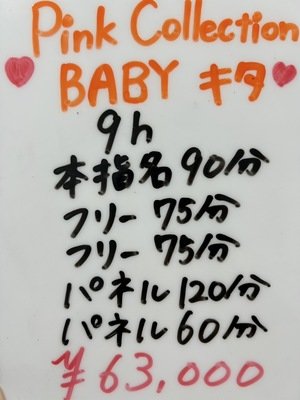 Pink Collection
BABY キタ
9h
本指名 90分
フリー 75分
フリー 75分
パネル 120分
パネル 60分
¥63,000